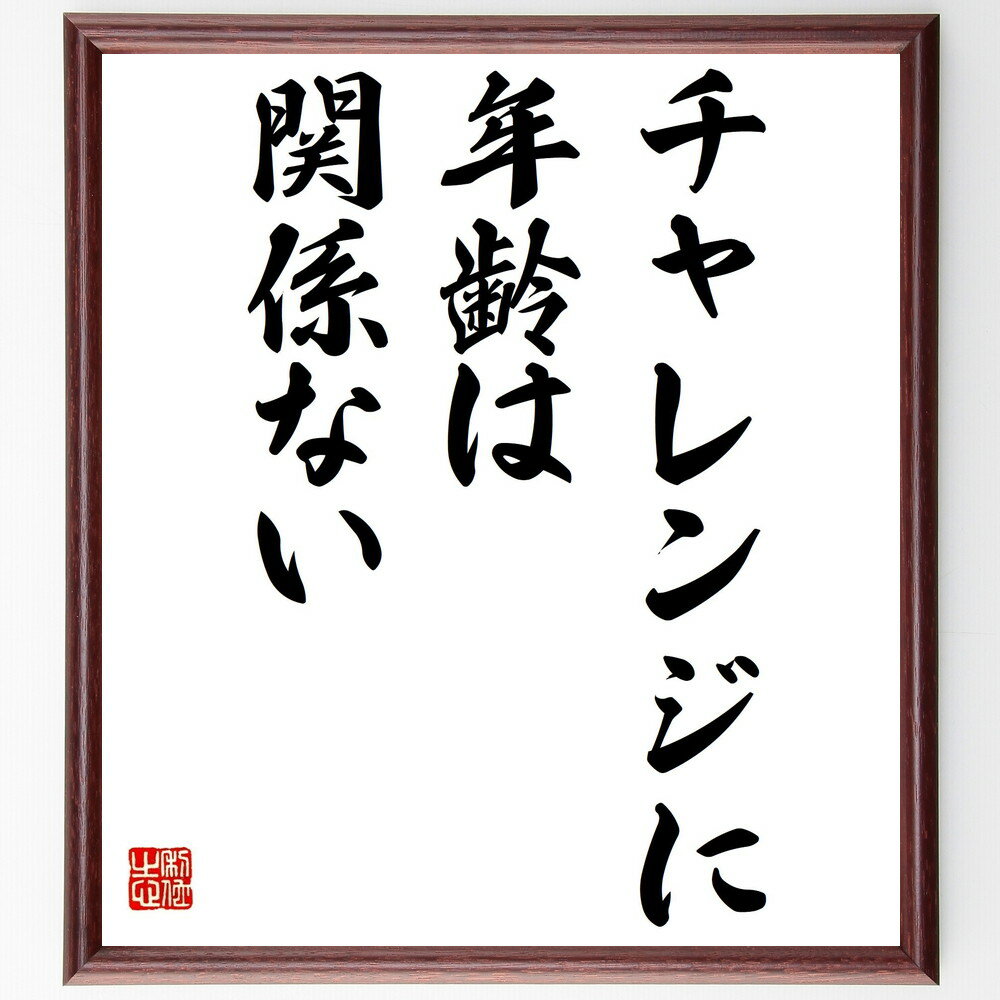 チャレンジに
年齢は
関係ない